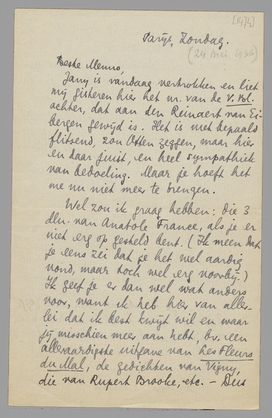 [1934]
Parijs, Zondag.
Beste Menno,
Jany is vandaag vertrokken en liet
mij gisteren hier het nr. van de V. Bl.
achter, dat aan den Reinaert van Ei-
bergen gewijd is. Het is niet bepaald
flitsend, zou Otten zeggen, maar hier
en daar juist, en heel sympathiek
van bedoeling. Maar je hoeft het
me nu niet meer te brengen.
Wel zou ik graag hebben: die 3
dln. van Anatole France, als je er
niet erg op gesteld bent. (Ik meen dat
je eens zei dat je het wel aardig
vond, maar toch wel erg voorbij.)
Ik geef je er dan wel wat anders
voor, want ik heb hier van aller-
lei dat ik best kwijt wil en waar
jij misschien meer aan hebt, b.v. een
allervaardigste uitgave van Les Fleurs
du Mal, de gedichten van Vigny,
die van Rupert Brooke, etc. — Dus